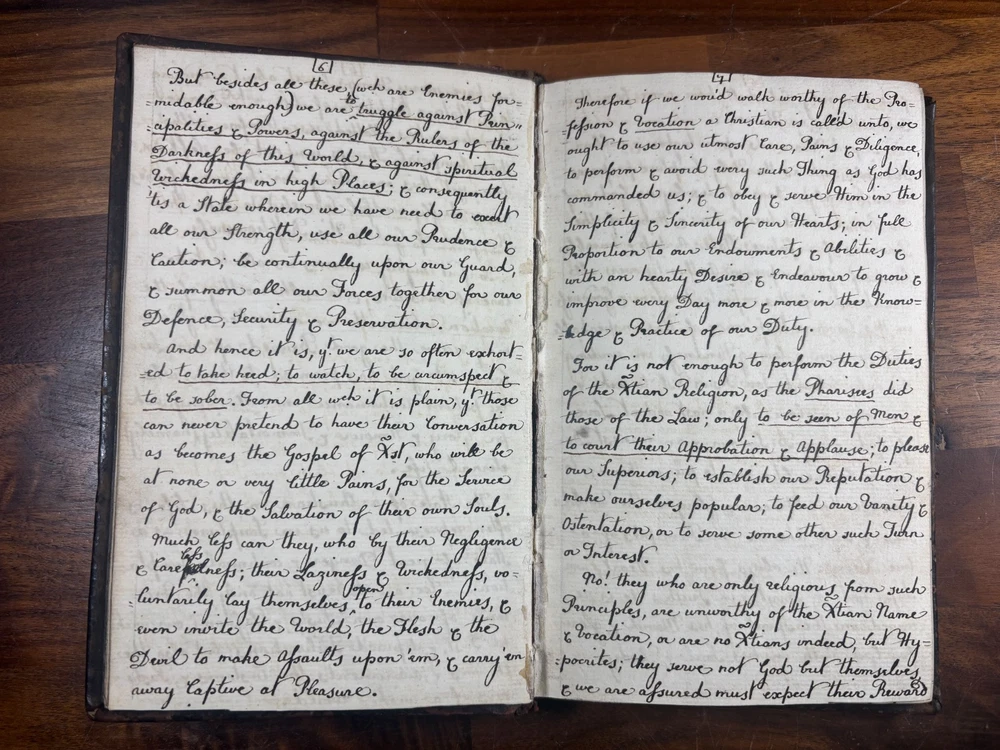 6
But besides all these (wch are Enemies for=
=midable enough) we are to struggle against Prin=
=cipalities & Powers, against the Rulers of the
Darkness of this World, & against spiritual
Wickedness in high Places; & consequently
'tis a State wherein we have need to exert
all our Strength, use all our Prudence &
Caution; be continually upon our Guard,
& summon all our Forces together for our
Defence, Security & Preservation.
And hence it is, yt. we are so often exhort=
=ed to take heed; to watch, to be circumspect &
to be sober. From all wch it is plain, yt. those
can never pretend to have their Conversation
as becomes the Gospel of X̃st, who will be
at none or very little Pains, for the Service
of God, & the Salvation of their own Souls.
Much less can they, who by their Negligence
& Carelessness; their Laziness & Wickedness, vo=
luntarily lay themselves open to their Enemies, &
even invite the World, the Flesh & the
Devil to make Assaults upon 'em, & carry 'em
away Captive at Pleasure.
7
Therefore if we wou'd walk worthy of the Pro=
=fession & Vocation a Christian is call'd unto, we
ought to use our utmost Care, Pains & Diligence,
to perform & avoid every such Thing as God has
commanded us; & to obey & serve Him in the
Simplicity & Sincerity of our Hearts; in full
Proportion to our Endowments & Abilities &
with an hearty Desire & Endeavour to grow &
improve every Day more & more in the Know=
=ledge & Practice of our Duty.
For it is not enough to perform the Duties
of the X̃tian Religion, as the Pharisees did
those of the Law; only to be seen of Men &
to court their Approbation & Applause; to please
our Superiors; to establish our Reputation &
make ourselves popular; to feed our Vanity &
Ostentation, or to serve some other such Turn
or Interest.
No! they who are only religious from such
Principles, are unworthy of the X̃tian Name
& Vocation, or are no X̃tians indeed, but Hy=
=pocrites; they serve not God but themselves,
& we are assured must expect their Reward